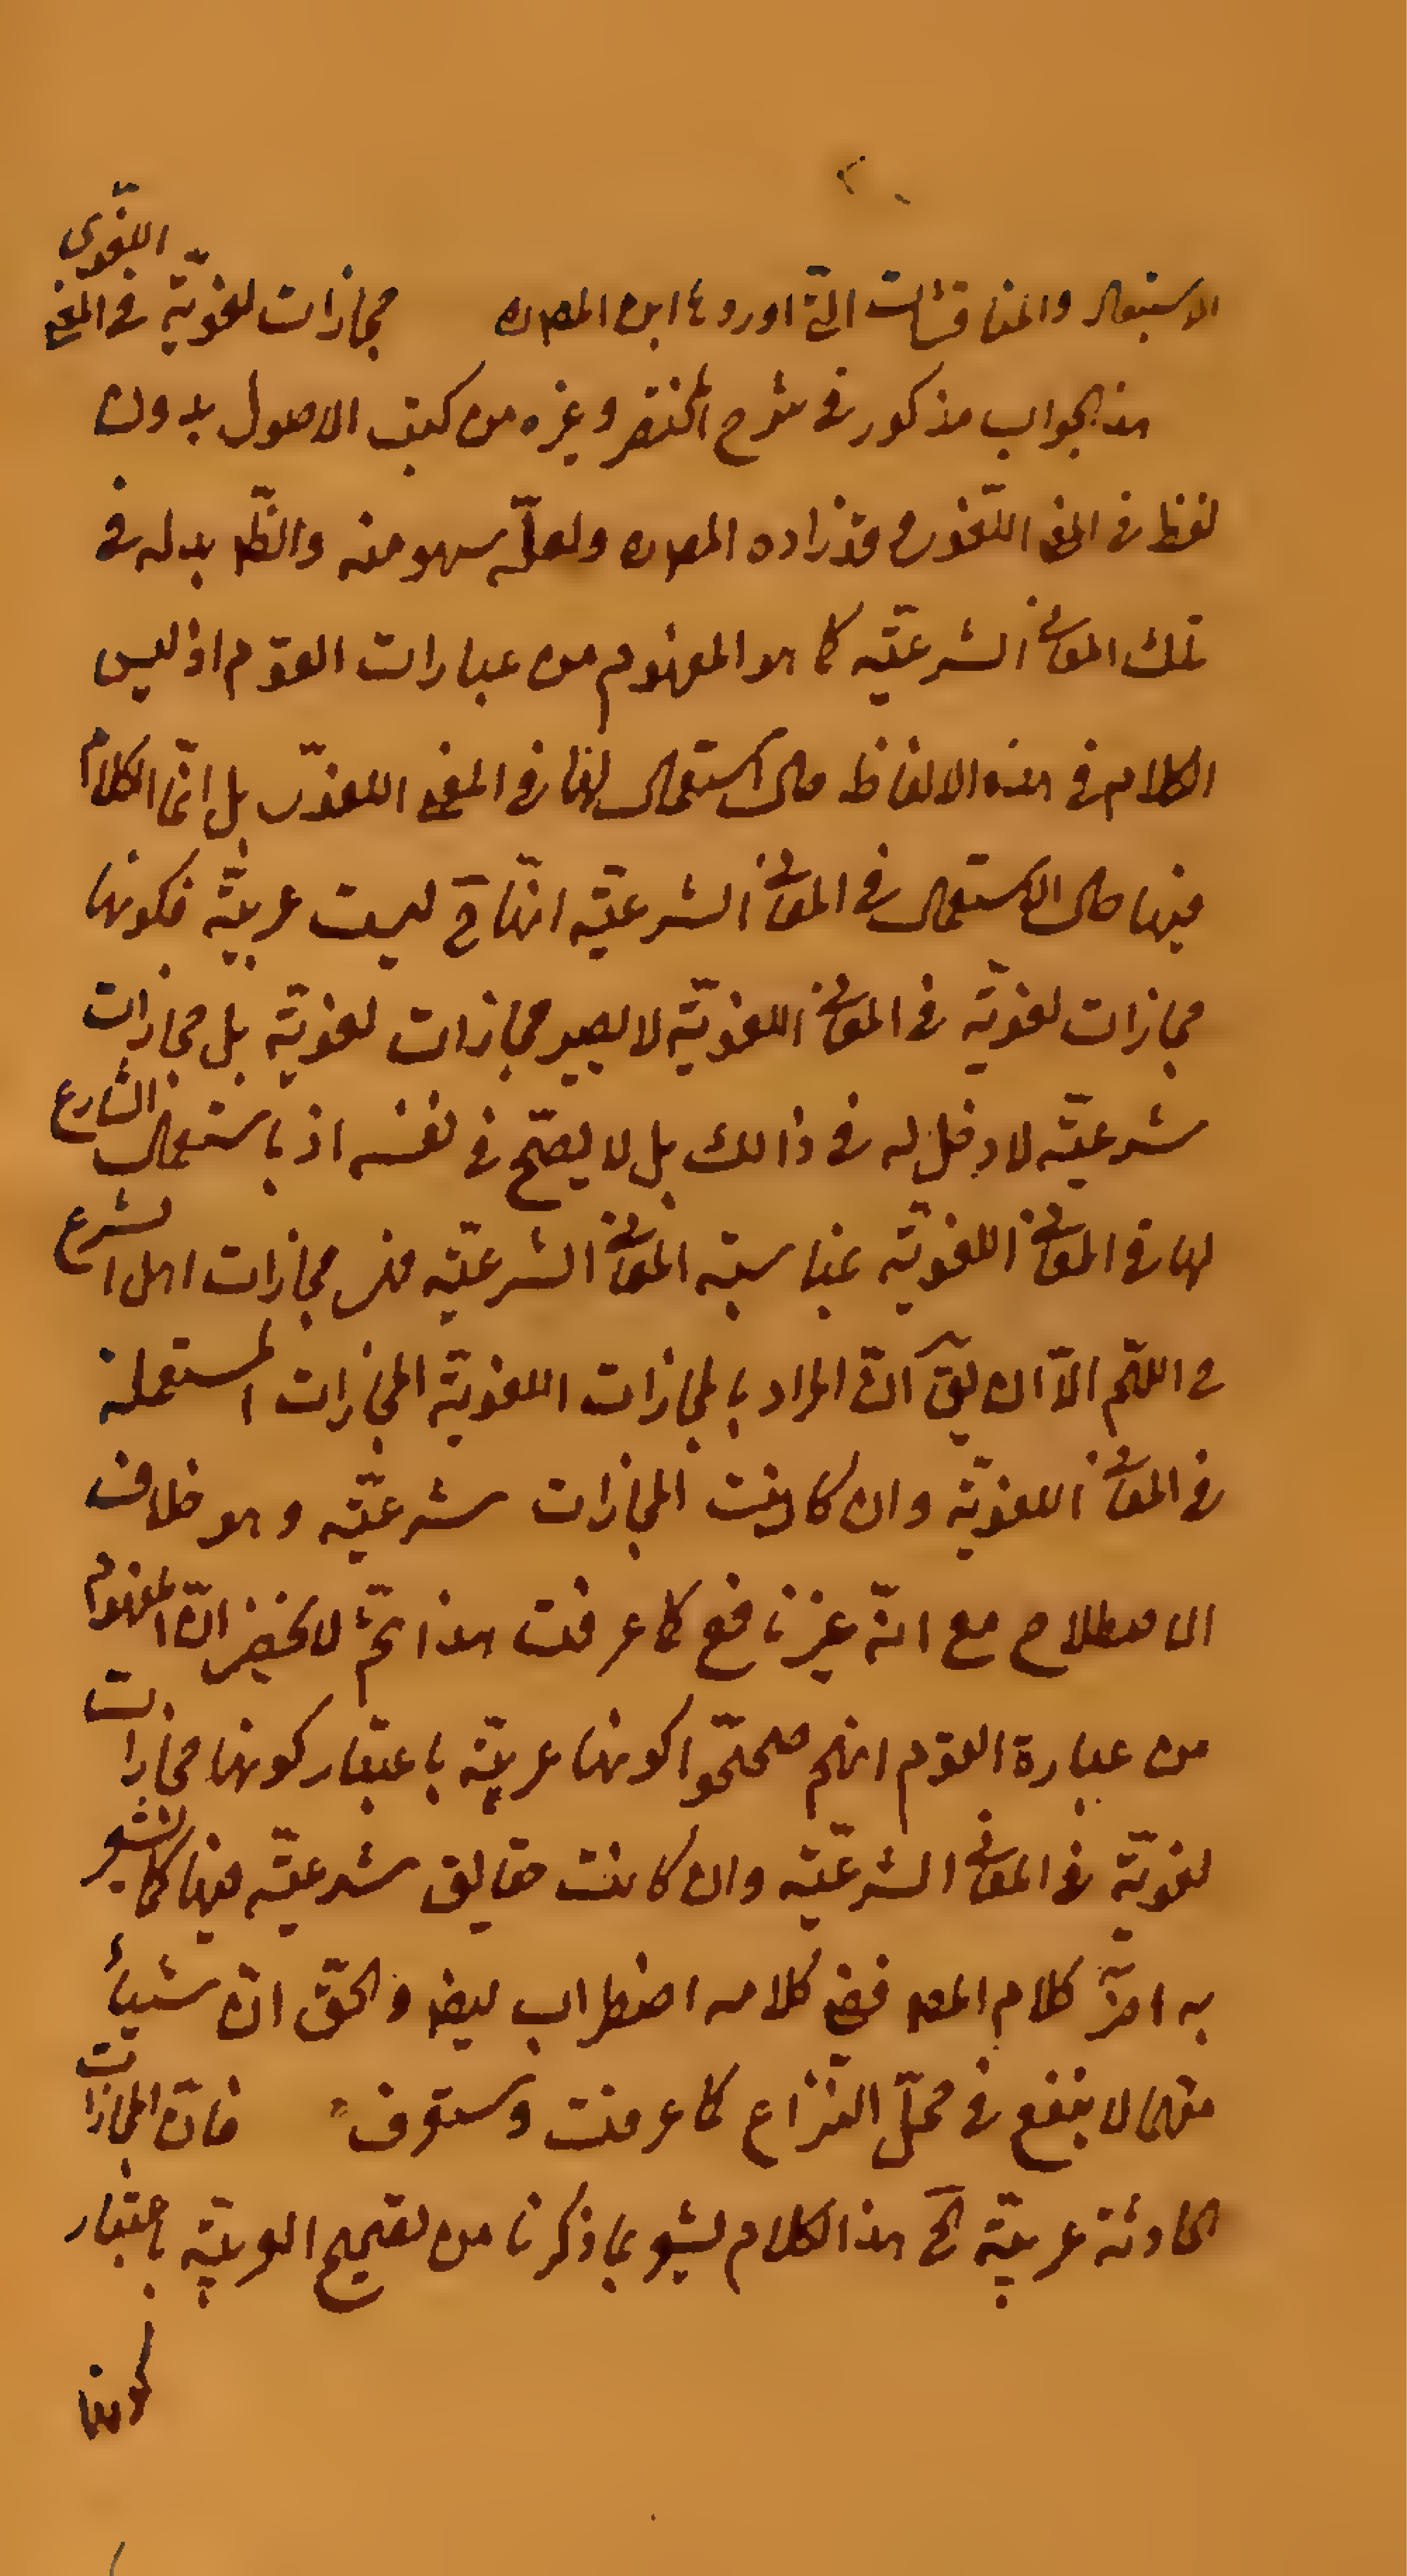 الاستعمال والمناقشات التي اوردها ابن المصره مجازات لغويّة في المعنى اللغوى
هذ الجواب مذكور في شرح المختصر وغيره من كتب الاصول بدون
لفظ في المعنى اللّغوى وقد زاده المصره ولعلّه سهو منه والظّ بدله في
تلك المعانى الشرعيّه كما هو المفهوم من عبارات القوم اذ ليس
الكلام في هذه الالفاظ حال استعمالها في المعنى اللغوىّ بل انّما الكلام
فيها حال الاستعمال في المعانى الشرعيّه انّها ح ليست عربيّه فكونها
مجازات لغويّه في المعانى اللغويّه لا يصير مجازات لغويّه بل مجازات
شرعيّه لا دخل له في ذالك بل لا يصحّ في نفسه اذ باستعمال الشارع
لها في المعانى اللغويّه بمناسبة المعانى الشرعيّه من مجازات اهل الشرع
اللّهم الّا ان يقّ انّ المراد بالمجازات اللغويّة المجازات المستعملة
في المعانى اللغويّة وان كانت المجازات شرعيّه وهو خلاف
الاصطلاح مع انّه غير نافع كما عرفت هذا ثمّ لا يخفى انّ المفهوم
من عبارة القوم انهم صحّحوا كونها عربيّة باعتبار كونها مجازات
لغويّة في المعانى الشرعيّه وان كانت حقايق شرعيّه فيها كما يشعر
به اخر كلام المصه ففي كلامه اضطراب ايضا والحقّ انّ شيئاً
منهما لا ينفع في محلّ النّزاع كما عرفت وستعرف فانّ المجازات
الحادثة عربيّة الخ هذا الكلام يشعر بما ذكرنا من تصحيح العربيّة باعتبار
كونها